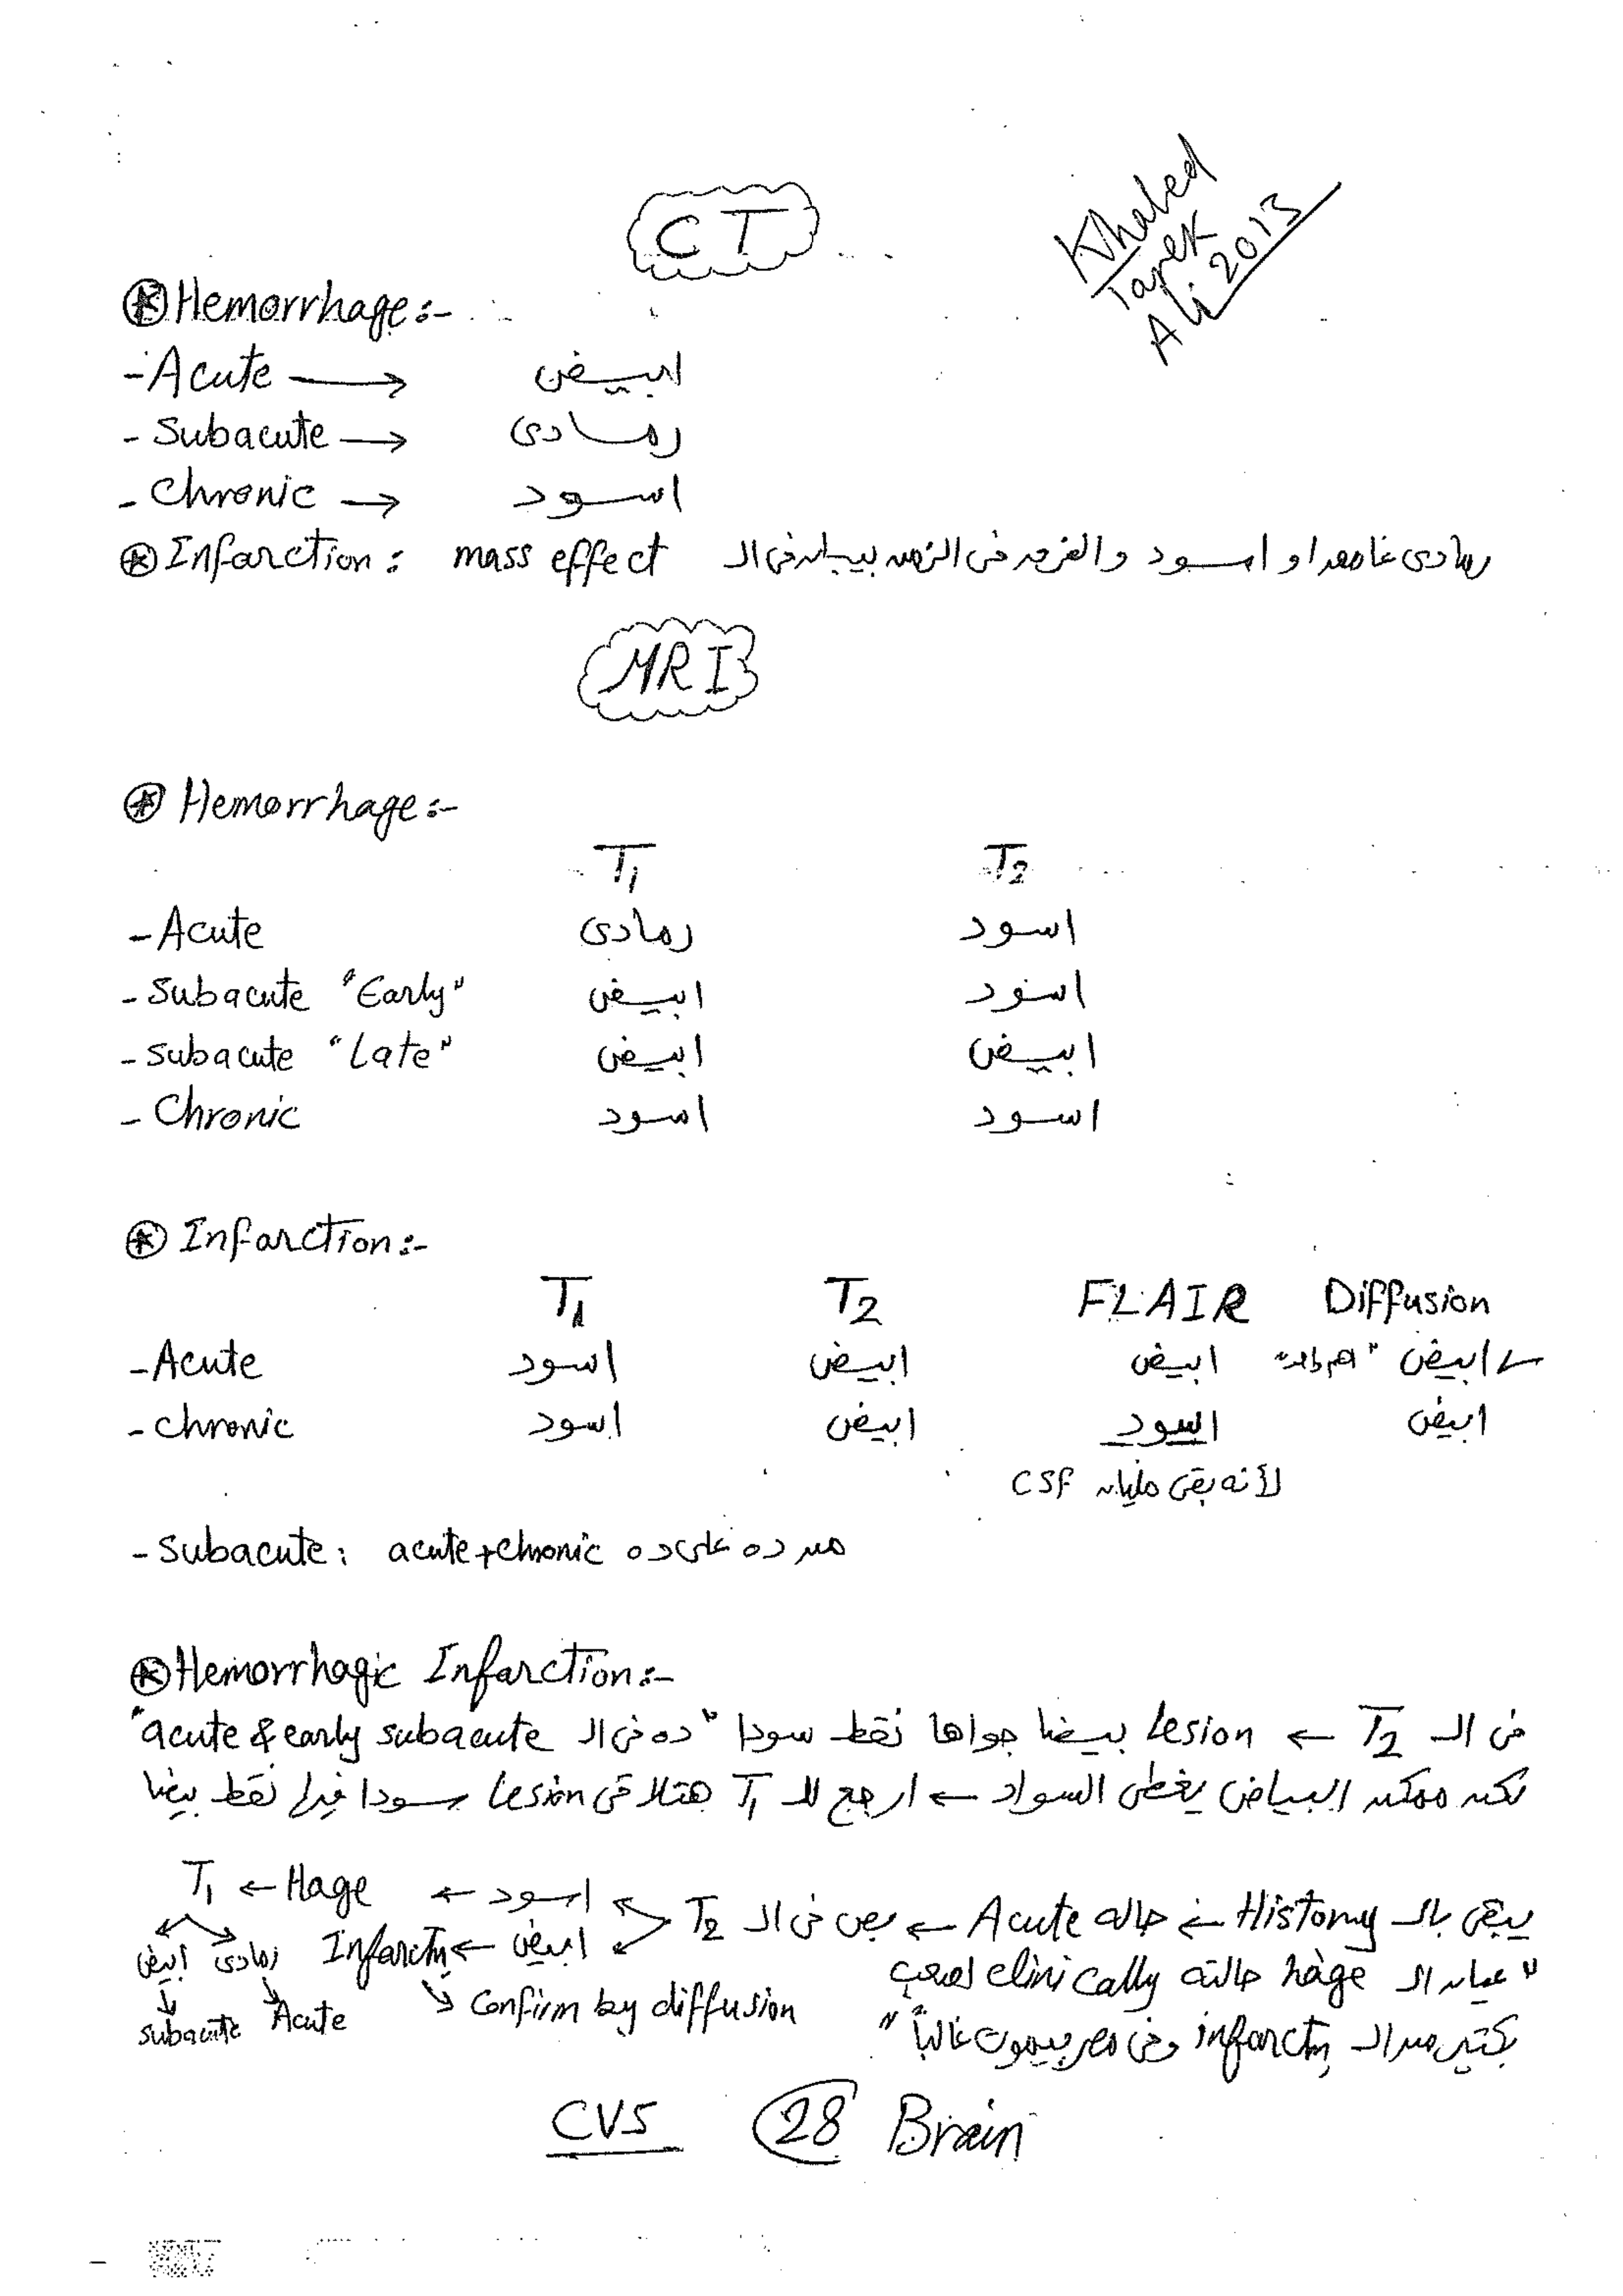 CT
Khaled
Tarek
Ali 2013
⊛ Hemorrhage:-
- Acute → ابيض
- Subacute → رمادى
- Chronic → اسود
⊛ Infarction: رمادى غامق او اسود والفرق فى الزمن بيبان فى الـ mass effect
MRI
⊛ Hemorrhage:-
T1 T2
- Acute رمادى اسود
- Subacute "Early" ابيض اسود
- Subacute "Late" ابيض ابيض
- Chronic اسود اسود
⊛ Infarction:-
T1 T2 FLAIR Diffusion
- Acute اسود ابيض ابيض ابيض
- Chronic اسود ابيض اسود ابيض
لأنه بقى مليان CSF
- Subacute: acute + chronic من ده على ده
⊛ Hemorrhagic Infarction:-
فى الـ T2 ← Lesion بيضا جواها نقط سودا "ده فى الـ acute & early subacute"
لكن ممكن البياض يغطى السواد ← ارجع للـ T1 هتلاقى Lesion سودا فيها نقط بيضا
يبقى بالـ History ← حاله Acute ← بص فى الـ T2
اسود ← Hage ← T1
ابيض ← Infarctn
رمادى ابيض
Acute Subacute
Confirm by diffusion
"عيان الـ hage حالته clinically اصعب
بكتير من الـ infarctn وفى مصر بيموت غالباً"
CVS 28 Brain